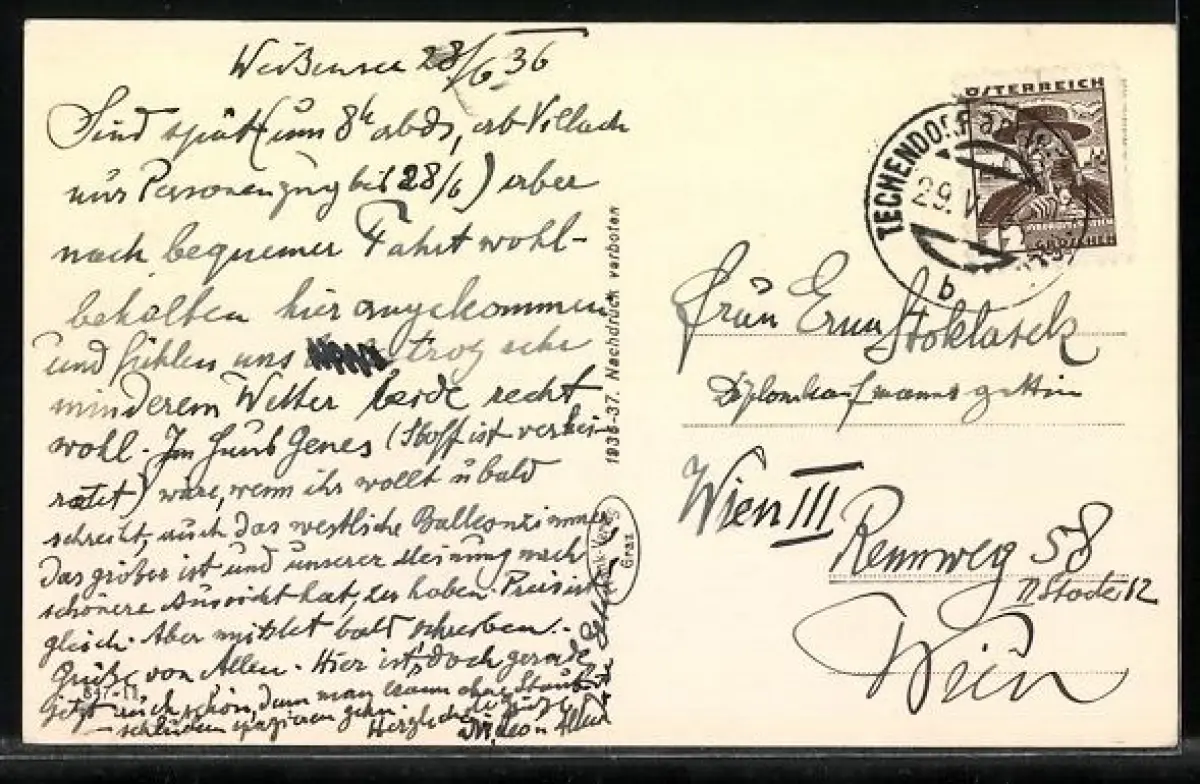 Weißensee 28/6 36
Sind spät (um 8h abds, ab Villach
nur Personenzug bis 28/6) aber
nach bequemer Fahrt wohl-
behalten hier angekommen
und fühlen uns trotz sehr
minderem Wetter beide recht
wohl. Im Haus Genes (Stoff ist verhei-
ratet) wäre, wenn ihr wollt u bald
schreibt, auch das westliche Balkonzimmer
das größer ist und unserer Meinung nach
schönere Aussicht hat, zu haben. Preis ist
gleich. Aber müsstet bald schreiben.
Grüße von Allen. Hier ist's doch gerade
jetzt auch schön, denn man kann ohne Staub
schlucken spazieren gehn. Herzliche Grüße
von Allen
1936-37. Nachdruck verboten
Graz
ÖSTERREICH
GROSCHEN
TECHENDORF
29. V
b
Frau Erna Stoklasek
Diplomkaufmannsgattin
Wien III
Rennweg 58
II Stock 12
Wien